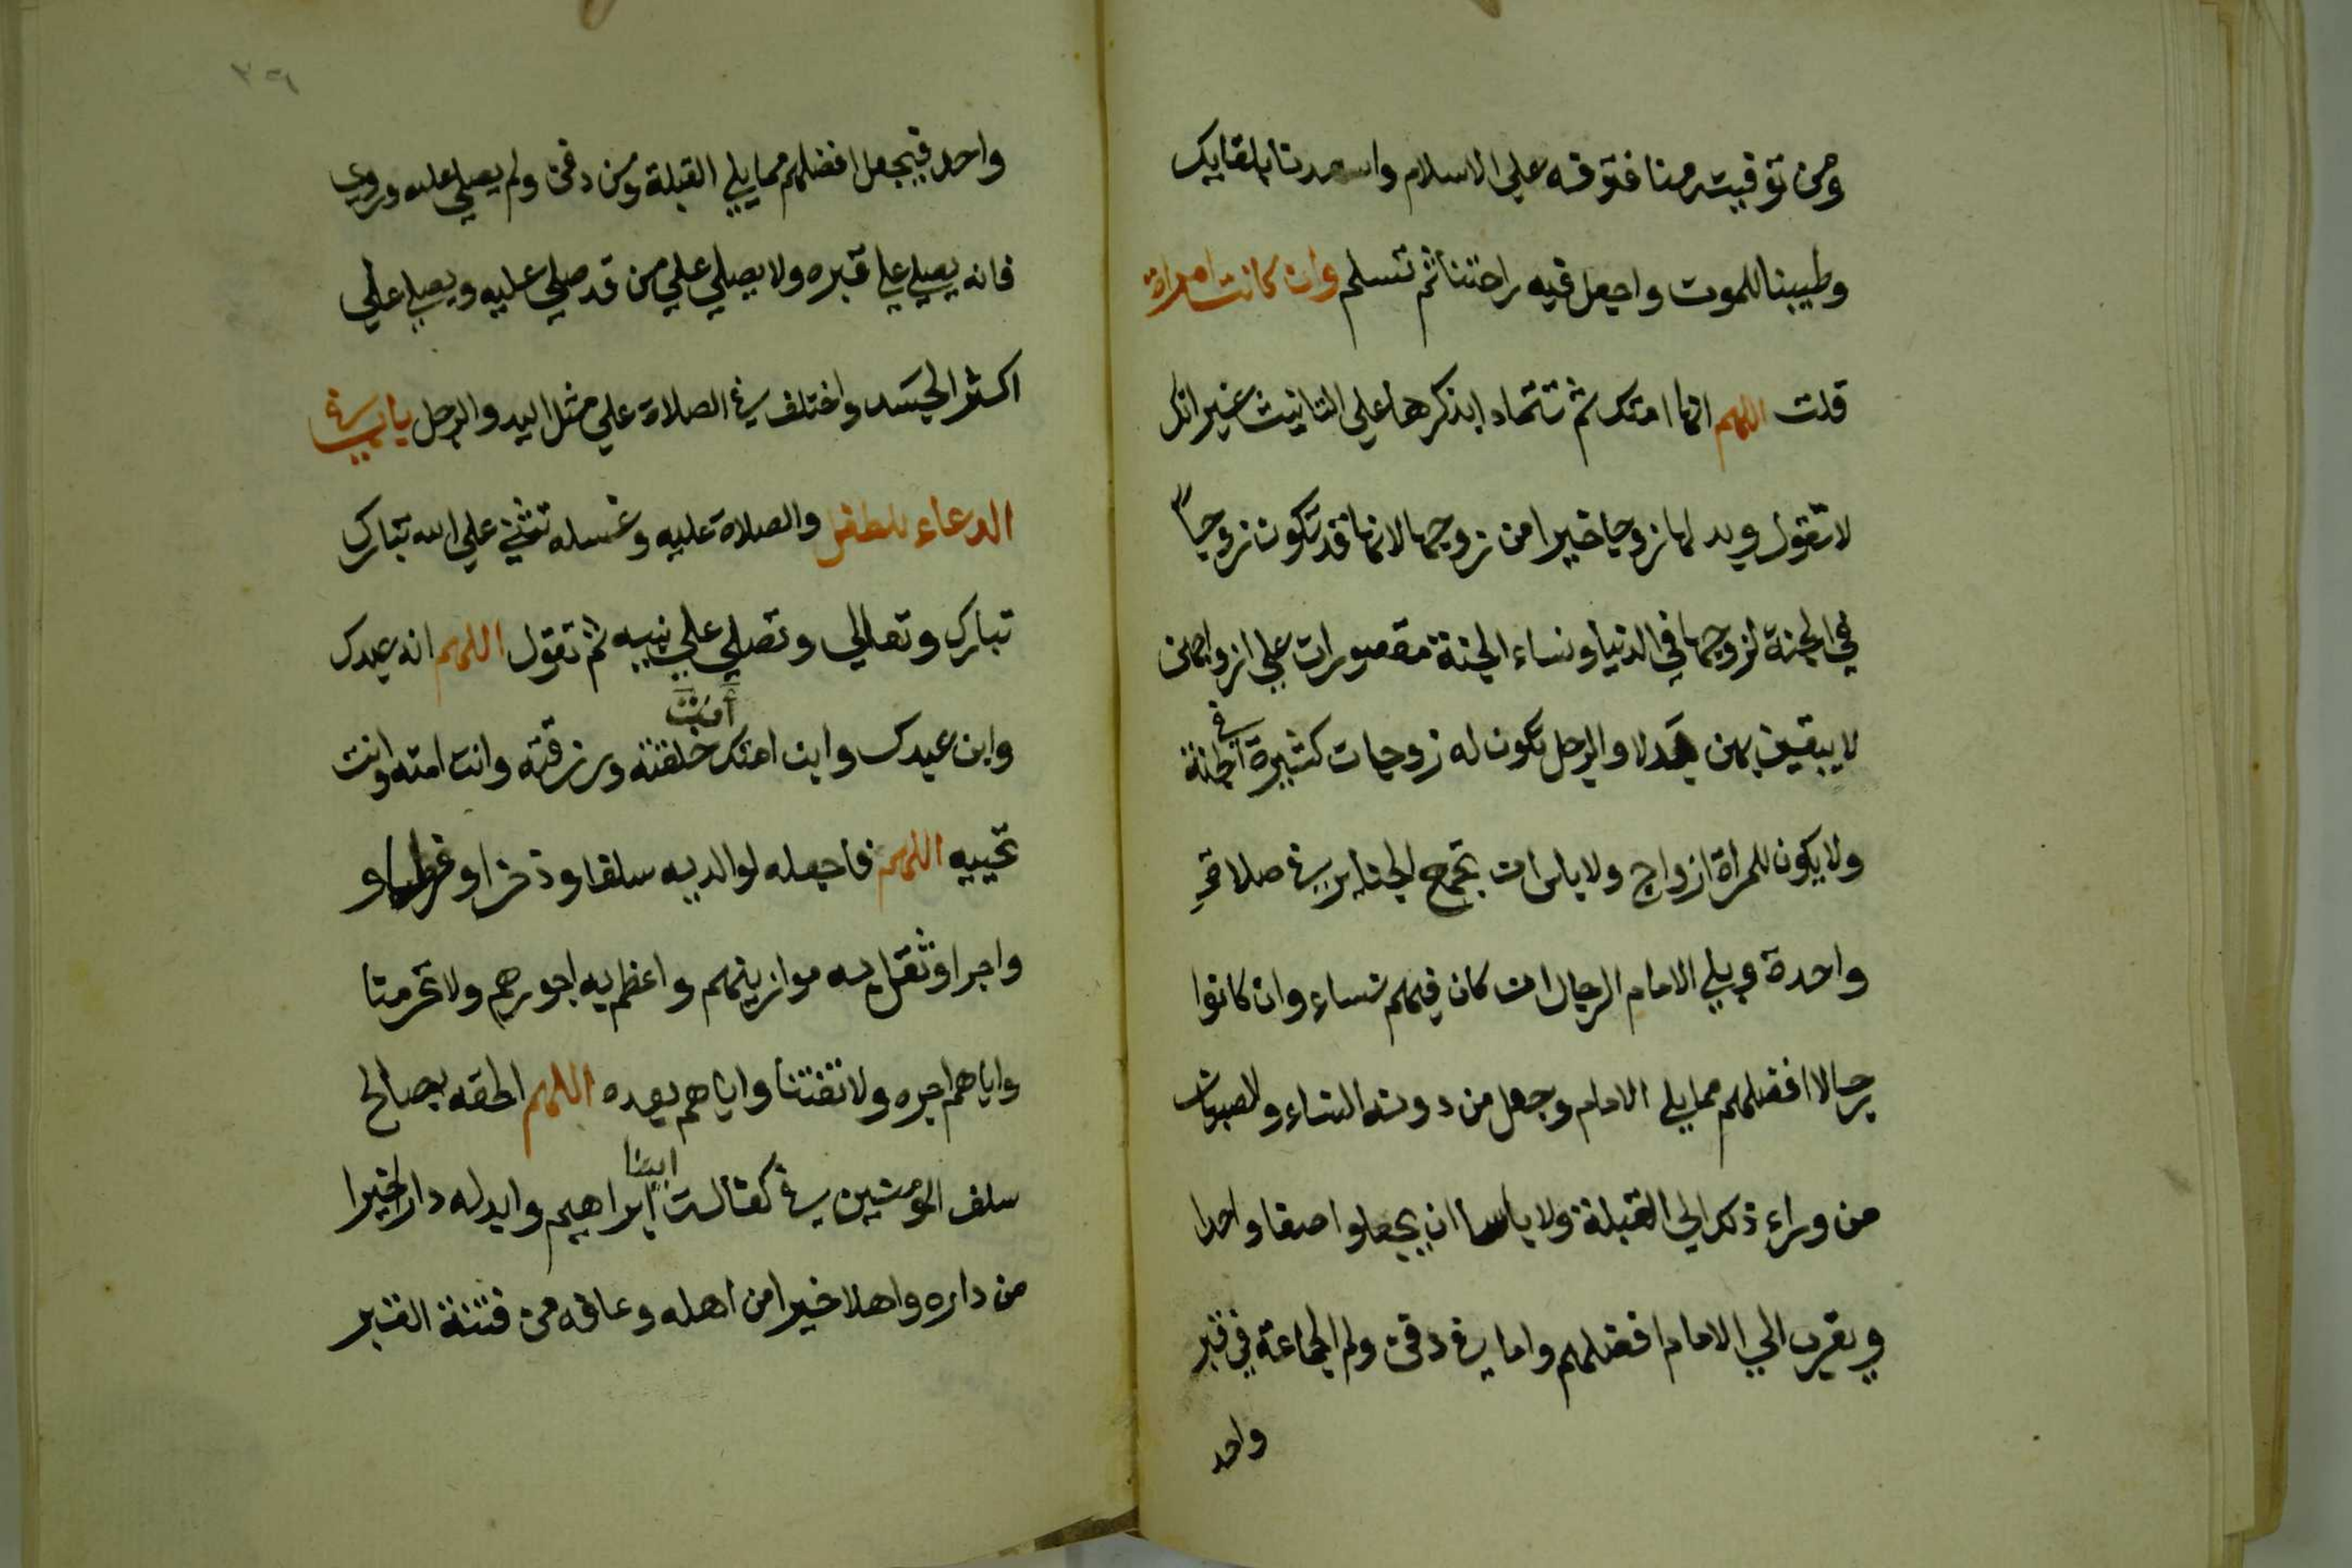 ومن توفيته منا فتوفه علي الاسلام واسعدنا بلقايك
وطيبنا للموت واجعل فيه راحتنا ثم تسلم وان كانت امراة
قلت اللهم انها امتك ثم تتماد ابذكرها علي التانيث غير انك
لا تقول وبدلها زوجا خيرا من زوجها لانها قد تكون زوجاً
في الجنة لزوجها في الدنيا ونساء الجنة مقصورات علي ازواجهن
لا يبغين بهن بدلا والرجل تكون له زوجات كثيرة في الجنة
ولا يكون للمراة ازواج ولا باس ان تجمع الجنايز في صلاة
واحدة ويلي الامام الرجال ان كان فيهم نساء وان كانوا
رجالا افضلهم مما يلي الامام وجعل من دونه النساء والصبيان
من وراء ذلك الي القبلة ولا باسا ان يجعلوا صفا واحدا
ويقرب الي الامام افضلهم واما في دفن ولم الجماعة في قبر
واحد
٣٦
واحد فيجعل افضلهم مما يلي القبلة ومن دفن ولم يصلي عليه وروي
فانه يصلي علي قبره ولا يصلي علي من قد صلي عليه ويصلي علي
اكثر الجسد واختلف في الصلاة علي مثل اليد والرجل باب في
الدعاء للطفل والصلاة عليه وغسله تثني علي الله تبارك
تبارك وتعالي وتصلي علي نبيه ثم تقول اللهم انه عبدك
وابن عبدك وابن امتك أنت خلقته ورزقته وانت امته وانت
تحييه اللهم فاجعله لوالديه سلفا وذخرا وفرطا و
واجرا وثقل به موازينهم واعظم به اجورهم ولا تحرمنا
واياهم اجره ولا تفتنا واياهم بعده اللهم الحقه بصالح
سلف المومنين في كفالت ابينا ابراهيم وابدله دارا خيرا
من داره واهلا خيرا من اهله وعافه من فتنة القبر